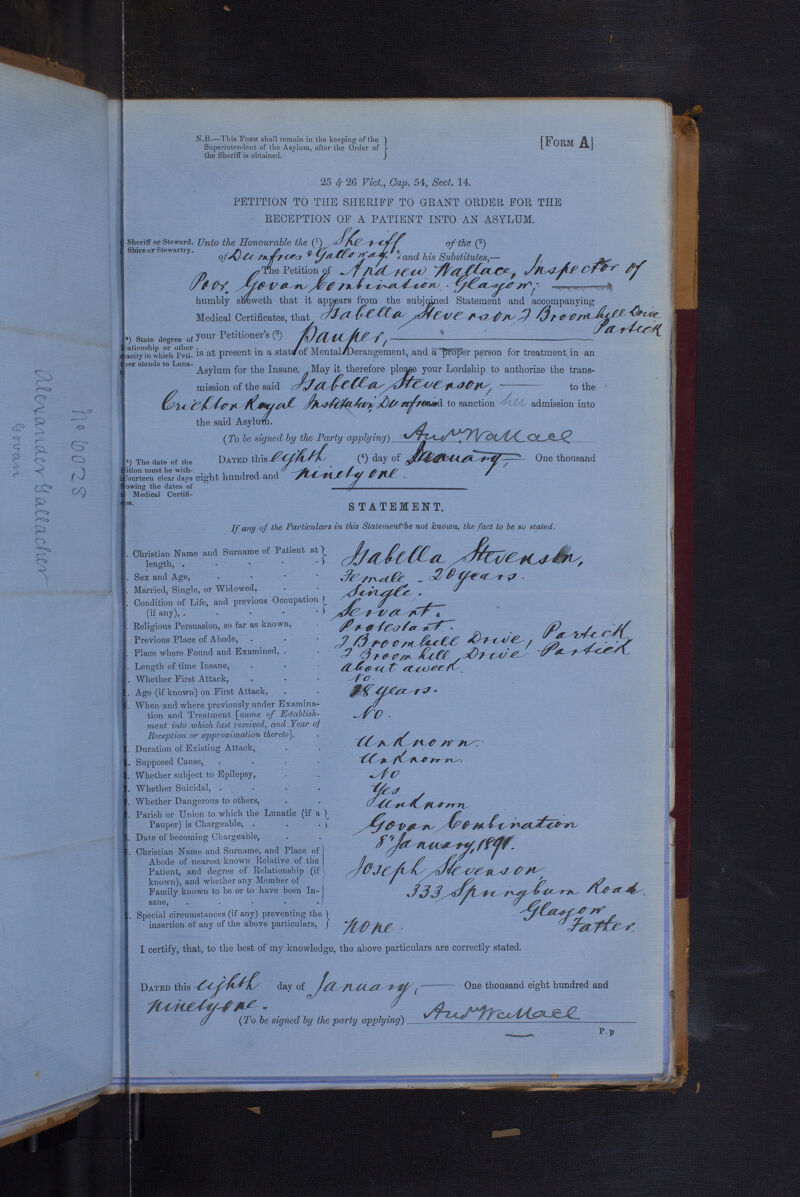 No 6028
Alexander Gallacher
Govan
N.B.—This Form shall remain in the keeping of the
Superintendent of the Asylum, after the Order of
the Sheriff is obtained.
[Form A]
25 & 26 Vict., Cap. 54, Sect. 14.
PETITION TO THE SHERIFF TO GRANT ORDER FOR THE
RECEPTION OF A PATIENT INTO AN ASYLUM.
Sheriff or Steward.
Shire or Stewartry.
Unto the Honourable the (¹) Sheriff of the (²)
of Dumfries & Galloway and his Substitutes,—
The Petition of Andrew Wallace, Inspector of
Poor, Govan Combination, Glasgow,
humbly sheweth that it appears from the subjoined Statement and accompanying
Medical Certificates, that Isabella Stevenson, 7 Broomhill Drive
Partick
³) State degree of
lationship or other
pacity in which Peti-
ner stands to Luna-
your Petitioner's (³) Pauper,
is at present in a state of Mental Derangement, and a proper person for treatment in an
Asylum for the Insane. May it therefore please your Lordship to authorize the trans-
mission of the said Isabella Stevenson, to the
Crichton Royal Institution, Dumfries and to sanction her admission into
the said Asylum.
(To be signed by the Party applying) Andw. Wallace
⁴) The date of the
tition must be with-
fourteen clear days
owing the dates of
Medical Certifi-
es.
Dated this eighth (⁴) day of January, One thousand
eight hundred and ninety one.
STATEMENT.
If any of the Particulars in this Statement be not known, the fact to be so stated.
Christian Name and Surname of Patient at length, . Isabella Stevenson,
Sex and Age, Female - 20 years.
Married, Single, or Widowed, Single.
Condition of Life, and previous Occupation (if any), . Servant.
Religious Persuasion, so far as known, Protestant.
Previous Place of Abode, 7 Broomhill Drive, Partick
Place where Found and Examined, . 7 Broomhill Drive Partick
Length of time Insane, About a week.
Whether First Attack, No.
Age (if known) on First Attack, 18 years.
When and where previously under Examina-
tion and Treatment [name of Establish-
ment into which last received, and Year of
Reception or approximation thereto], No.
Duration of Existing Attack, Unknown.
Supposed Cause, Unknown.
Whether subject to Epilepsy, No
Whether Suicidal, . Yes
Whether Dangerous to others, Unknown
Parish or Union to which the Lunatic (if a
Pauper) is Chargeable, . Govan Combination
Date of becoming Chargeable, 8 January, 1891.
Christian Name and Surname, and Place of
Abode of nearest known Relative of the
Patient, and degree of Relationship (if
known), and whether any Member of
Family known to be or to have been In-
sane, Joseph Stevenson,
333 Springburn Road.
Glasgow
Father.
Special circumstances (if any) preventing the
insertion of any of the above particulars, None.
I certify, that, to the best of my knowledge, the above particulars are correctly stated.
Dated this eighth day of January, One thousand eight hundred and
ninety one.
(To be signed by the party applying) Andw Wallace
P. p